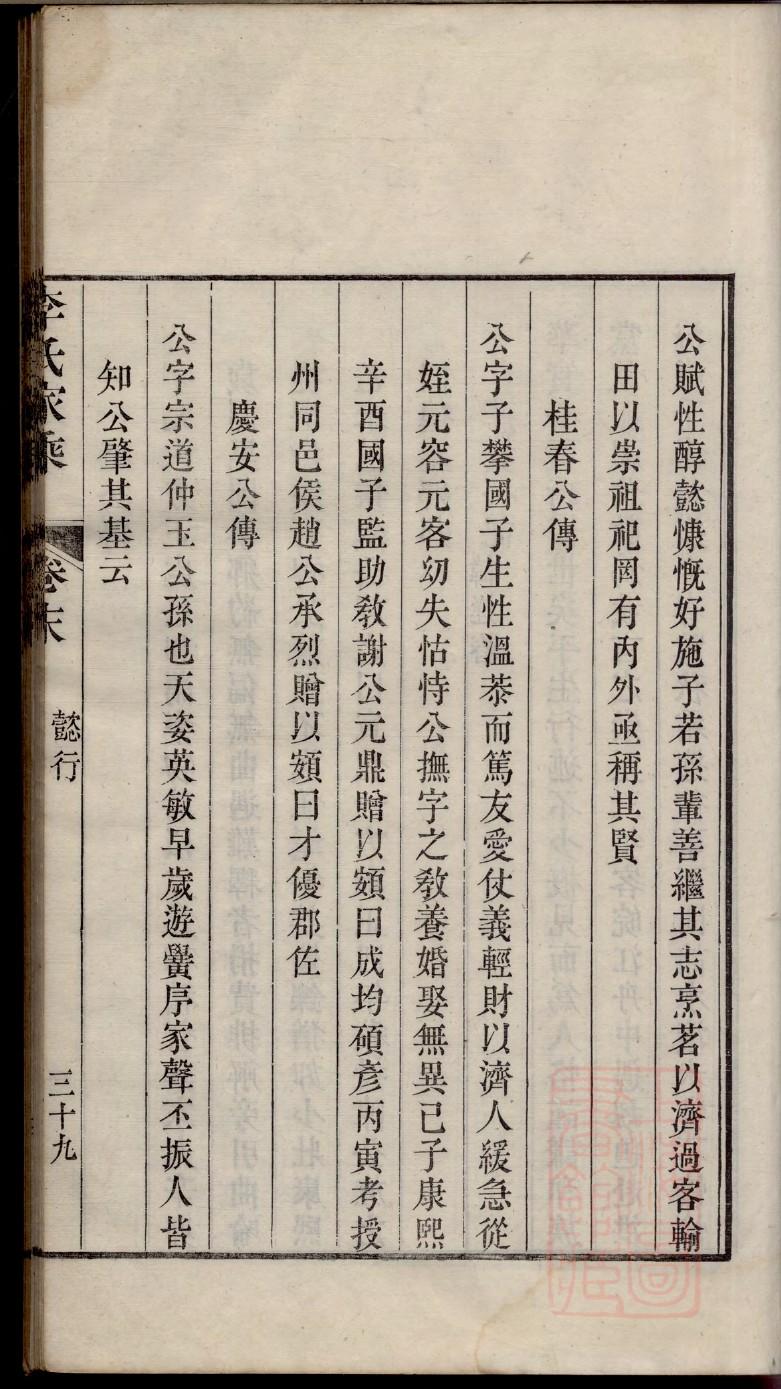 公賦性醇懿慷慨好施子若孫輩善繼其志烹茗以濟過客輸
田以崇祖祀罔有內外亟稱其賢
桂春公傳
公字子攀國子生性溫恭而篤友愛仗義輕財以濟人緩急從
姪元容元客幼失怙恃公撫字之教養婚娶無異己子康熙
辛酉國子監助敎謝公元鼎贈以額曰成均碩彥丙寅考授
州同邑侯趙公承烈贈以額曰才優郡佐
慶安公傳
公字宗道仲玉公孫也天姿英敏早歲遊黌序家聲丕振人皆
知公肇其基云
李氏家乘 卷末 懿行 三十九